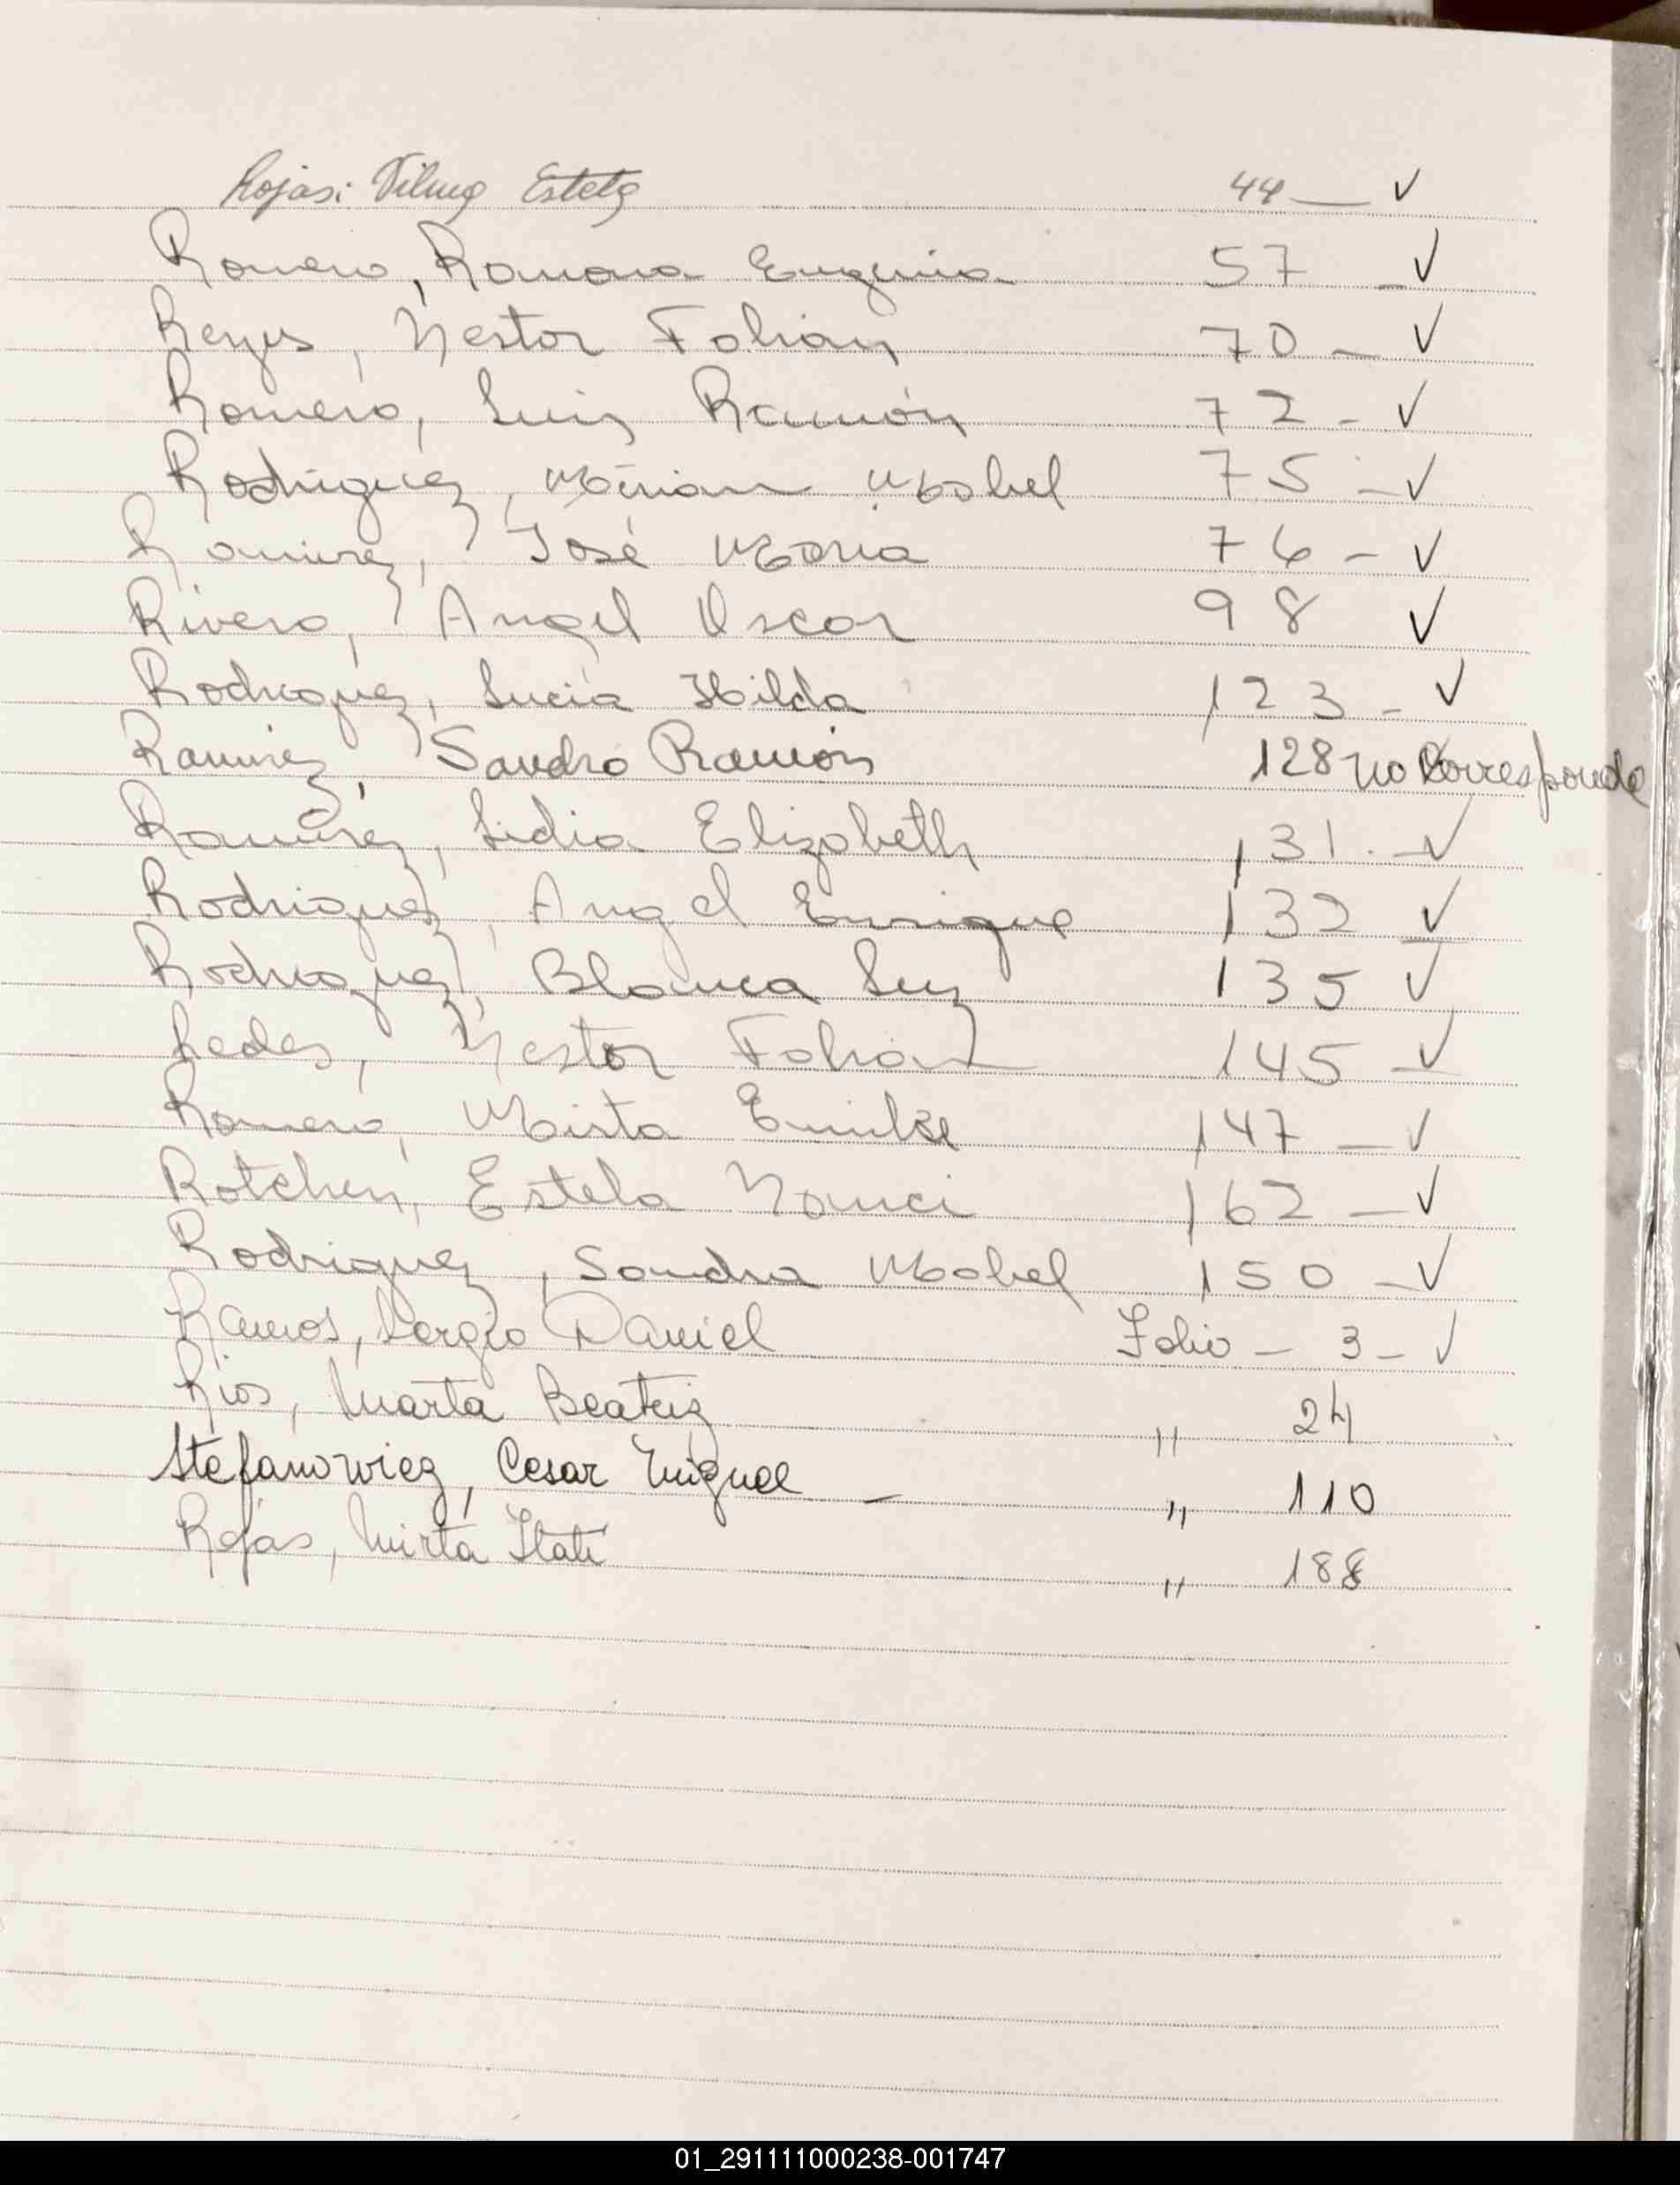 Rojas: Vilma Estela 44 — ✓
Romero, Ramona Eugenia 57 - ✓
Reyes, Nestor Fabian 70 - ✓
Romero, Luis Ramón 72 - ✓
Rodriguez, Mirian Mabel 75 - ✓
Ramirez, José Maria 76 - ✓
Rivero, Angel Oscar 98 ✓
Rodriguez, Lucia Hilda 123 - ✓
Ramirez, Sandro Ramón 128 no corresponde
Ramirez, Lidia Elizabeth 131. - ✓
Rodriguez, Angel Enrique 132 ✓
Rodriguez, Blanca Luz 135 ✓
Nestor Fabian 145 - ✓
Romero, Mirta Emilse 147 - ✓
Rotchen, Estela Nanci 162 - ✓
Rodriguez, Sandra Mabel 150 - ✓
Ramos, Sergio Daniel Folio - 3 - ✓
Rios, Marta Beatriz " 24
Stefanowicz, Cesar Miguel - " 110
Rojas, Mirta Itati " 188
01_291111000238-001747